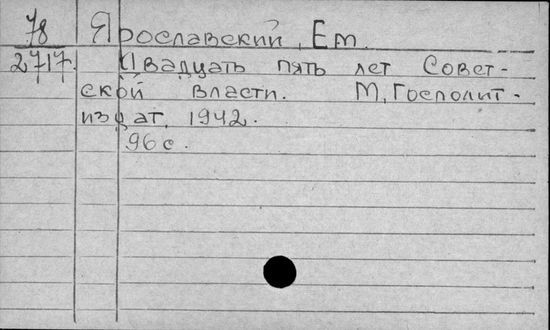 78 Ярославский, Ем.
2717. Двадцать пять лет Совет-
ской власти. М, Госполит-
издат, 1942.
96 с.